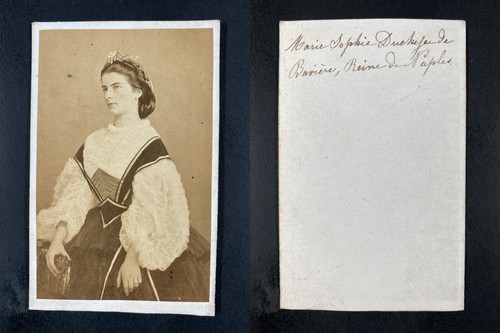 Marie Sophie Duchesse de
Bavière, Reine de Naples